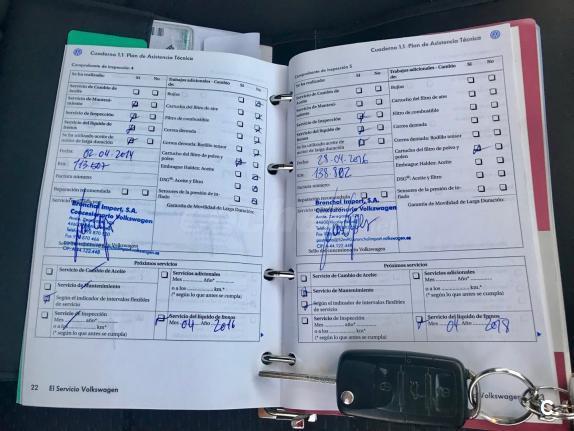 Cuaderno 1.1 Plan de Asistencia Técnica
Comprobante de inspección 4
Se ha realizado: Sí No
Servicio de Cambio de Aceite
Servicio de Mantenimiento
Servicio de Inspección
Servicio del líquido de frenos
Se ha utilizado aceite de motor de larga duración
Fecha: 02-04-2014
Km: 113.607
Factura número
Reparación recomendada
Trabajos adicionales - Cambio de: Sí No
Bujías
Cartucho del filtro de aire
Filtro de combustible
Correa dentada
Correa dentada: Rodillo tensor
Cartucho del filtro de polvo y polen
Embrague Haldex: Aceite
DSG®: Aceite y filtro
Sensores de la presión de inflado
Garantía de Movilidad de Larga Duración:
Bronchal Import, S.A.
Concesionario Volkswagen
Próximos servicios
Servicio de Cambio de Aceite
Servicio de Mantenimiento
Según el indicador de intervalos flexibles de servicio
Servicio de Inspección
Mes ......... Año*.........
o a los ............. km.*
(* según lo que antes se cumpla)
Servicios adicionales
Mes ......... Año*.........
o a los ............. km.*
(* según lo que antes se cumpla)
Servicio del líquido de frenos
Mes 04 Año 2016
22 El Servicio Volkswagen
Cuaderno 1.1 Plan de Asistencia Técnica
Comprobante de inspección 5
Se ha realizado: Sí No
Servicio de Cambio de Aceite
Servicio de Mantenimiento
Servicio de Inspección
Servicio del líquido de frenos
Se ha utilizado aceite de motor de larga duración
Fecha: 28-04-2016
Km: 138.802
Factura número
Reparación recomendada
Trabajos adicionales - Cambio de: Sí No
Bujías
Cartucho del filtro de aire
Filtro de combustible
Correa dentada
Correa dentada: Rodillo tensor
Cartucho del filtro de polvo y polen
Embrague Haldex: Aceite
DSG®: Aceite y filtro
Sensores de la presión de inflado
Garantía de Movilidad de Larga Duración:
Bronchal Import, S.A.
Concesionario Volkswagen
Próximos servicios
Servicio de Cambio de Aceite
Servicio de Mantenimiento
Según el indicador de intervalos flexibles de servicio
Servicio de Inspección
Mes ......... Año*.........
o a los ............. km.*
(* según lo que antes se cumpla)
Servicios adicionales
Mes ......... Año*.........
o a los ............. km.*
(* según lo que antes se cumpla)
Servicio del líquido de frenos
Mes 04 Año 2018
Volkswagen